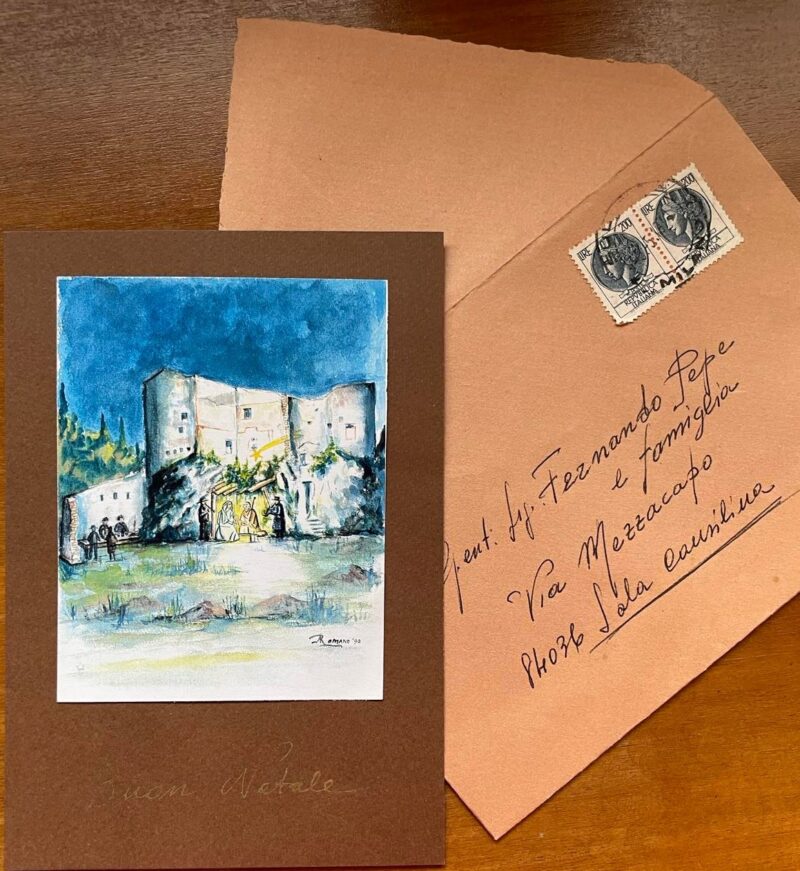 Romano '90
Buon Natale
LIRE 200
LIRE 200
REPUBBLICA
ITALIANA
ITALIANA
MIL
Gent: Sig. Fernando Pepe
e famiglia
Via Mezzacapo
84036 Sala Consilina